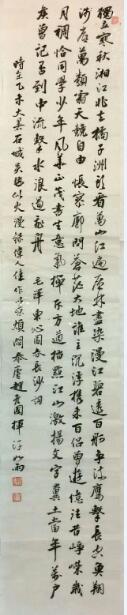 獨立寒秋湘江北去橘子洲頭看萬山紅遍層林盡染漫江碧透百舸爭流鷹擊長空魚翔
淺底萬類霜天競自由悵寥廓問蒼茫大地誰主沉浮攜來百侶曾遊憶往昔崢嶸歲
月稠恰同學少年風華正茂書生意氣揮斥方遒指點江山激揚文字糞土當年萬戶
侯曾記否到中流擊水浪遏飛舟 毛澤東沁園春長沙詞
時在乙未大暑石城